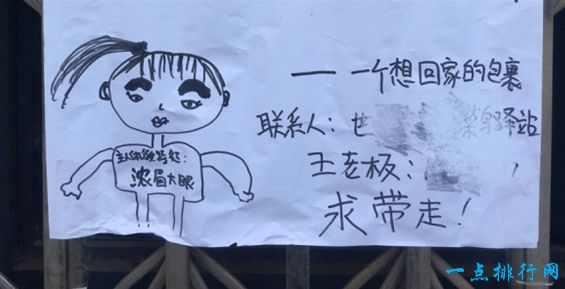 主人体貌特征：
浓眉大眼
——一个想回家的包裹
联系人：世 菜鸟驿站
王老板：
求带走！
一点排行网